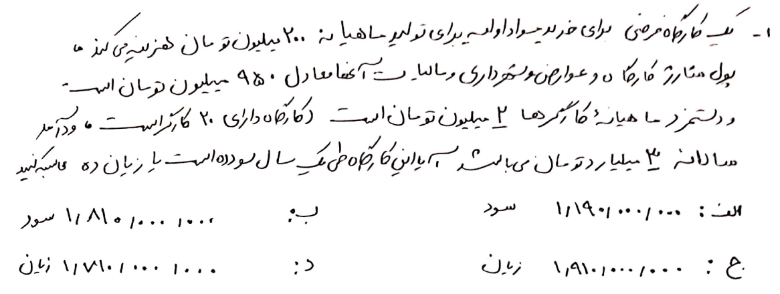 ۱- یک کارگاه فرضی برای خرید مواد اولیه برای تولید ماهیانه ۲۰۰ میلیون تومان هزینه می کند
پول شارژ کارگاه و عوارض شهرداری و مالیات آنها معادل ۹۵۰ میلیون تومان است
و دستمزد ماهیانهٔ کارگرها ۲ میلیون تومان است (کارگاه دارای ۲۰ کارگر است و درآمد
سالانه ۳ میلیارد تومان می باشد آیا این کارگاه طی یک سال سود ده است یا زیان ده محاسبه کنید
الف: ۱,۱۹۰,۰۰۰,۰۰۰ سود ب: ۱,۸۱۰,۰۰۰,۰۰۰ سود
ج: ۱,۹۱۰,۰۰۰,۰۰۰ زیان د: ۱,۷۱۰,۰۰۰,۰۰۰ زیان